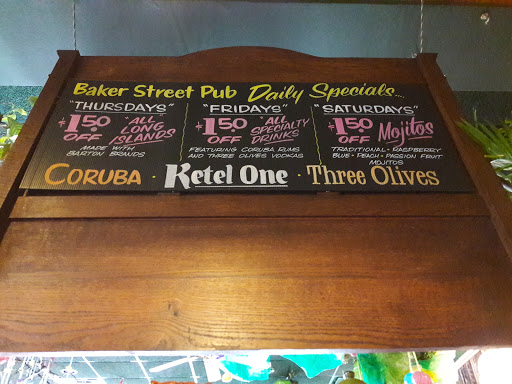 Baker Street Pub Daily Specials....
"THURSDAYS"
$1.50 OFF "ALL LONG ISLANDS
MADE WITH
BARTON BRANDS
"FRIDAYS"
$1.50 OFF ALL SPECIALTY DRINKS
FEATURING CORUBA RUMS
AND THREE OLIVES VODKAS
"SATURDAYS"
$1.50 OFF Mojitos
TRADITIONAL - RASPBERRY
BLUE - PEACH - PASSION FRUIT
MOJITOS
CORUBA · Ketel One · THREE OLIVES